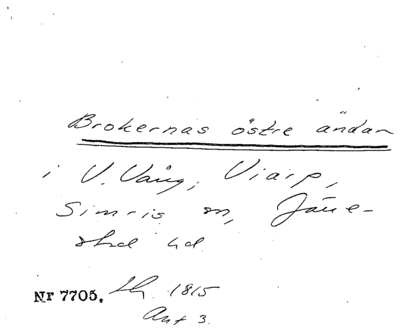 Brokernas östre ändan
i V. Vång, Viarp,
Simris sn, Järre-
stad hd
Nr 7705. Sk. 1815
Akt 3.